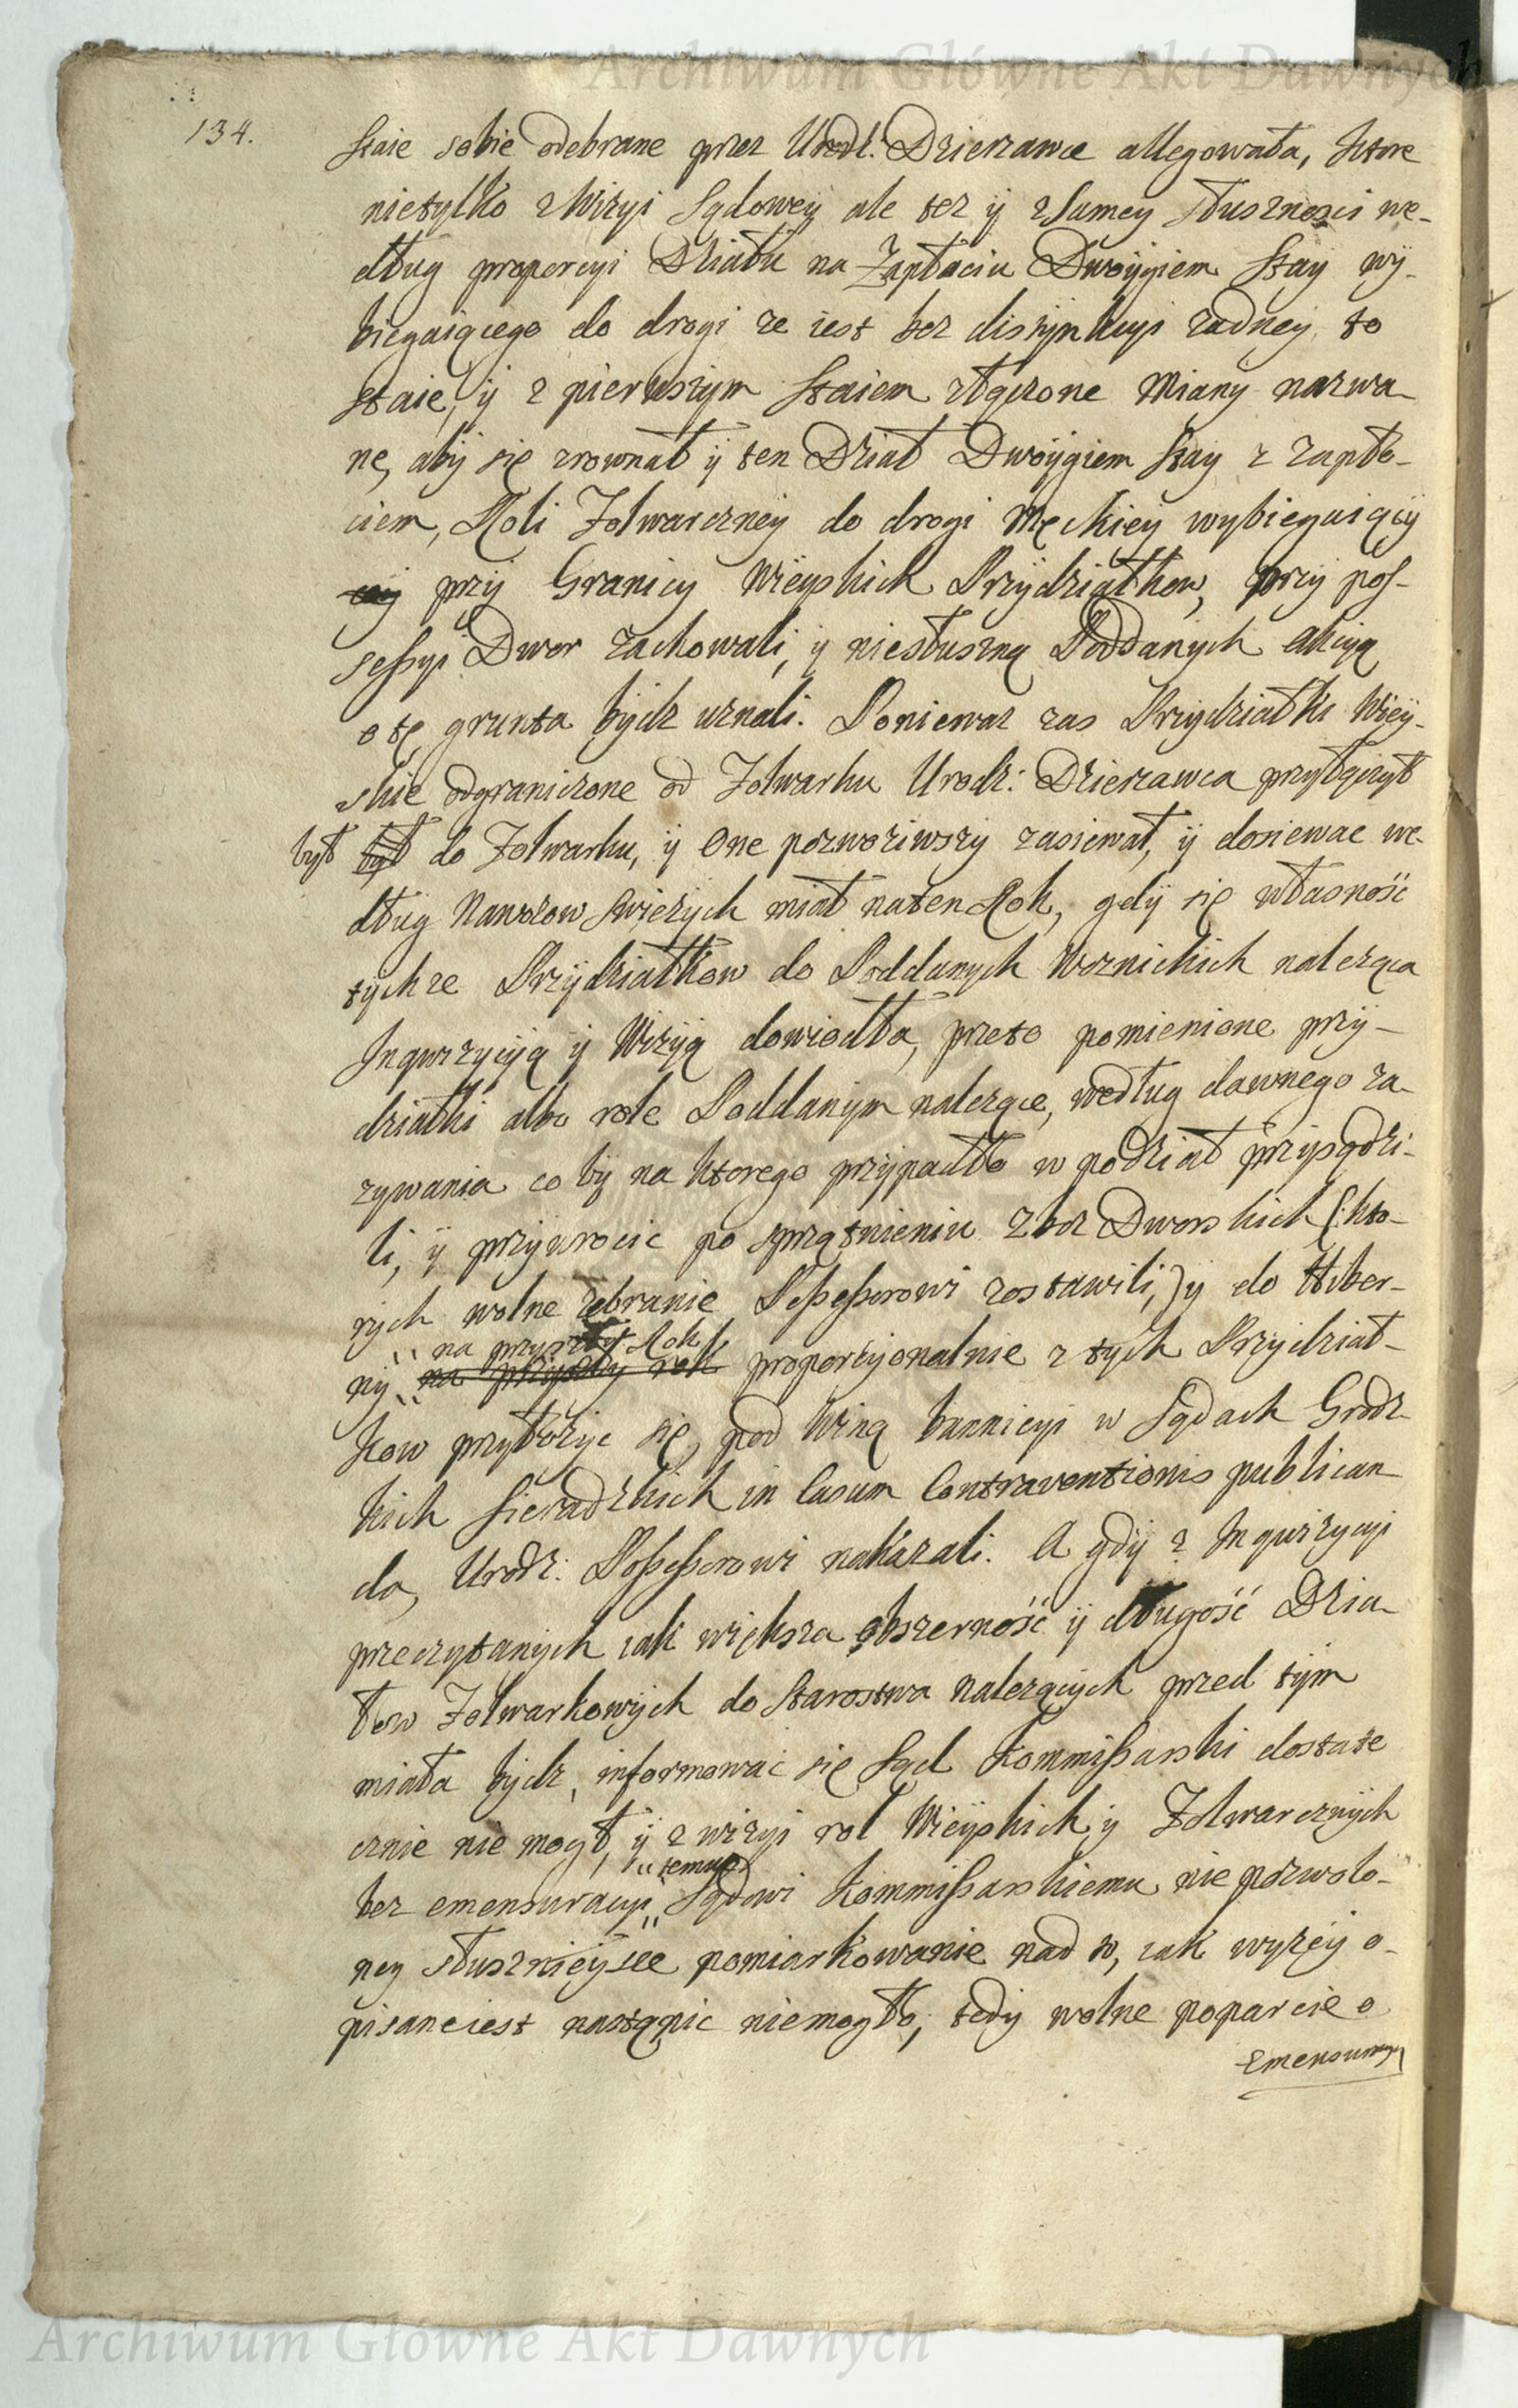 Archiwum Główne Akt Dawnych
134.
staie sobie odebrane przez Urodz: Dzierzawce allegowała, ktore
nietylko z Wizyi Sądowey ale tez ÿ z Samey słusznosci we-
dług proporcyi Działu na Zapłociu Dwoÿgiem Stay wÿ-
biegaiącego do drogi ze iest bez distynkcyi zadney to
staie, ÿ z pierwszym Staiem złączone Miany nazwa
ne, abÿ się zrownał ÿ ten Dział Dwoÿgiem stay z zapło-
ciem, Roli Folwarczneÿ do drogi Męckieÿ wybiegaiącÿ
cey przÿ Granicÿ Wieyskich Przÿdziałkow, przÿ pos-
sessyi Dwor zachowali, ÿ niesłuszną Poddanÿch akcyą
o tę grunta bÿdz uznali. Poniewaz zas Przÿdziałki Wieÿ-
skie odgraniczone od Folwarku Urodz: Dzierzawca przyłączył
był był do Folwarku, ÿ One pozwoziwszÿ zasiewał, ÿ dosiewac we-
dług Nawozow Swiezych miał na ten Rok, gdÿ się własność
tÿchze Przÿdziałkow do Poddanych Woznickich nalezącа
Inqwizycÿą ÿ Wizÿą dowiodła, przeto pomienione przÿ-
działki albo role Poddanÿm nalezące, według dawnego za-
zywania co bÿ na ktorego przÿpadło w podział przysądzi-
li, ÿ przywrocic po sprzątnieniu Zboz Dworskich (: kto-
rÿch wolne zebranie Possessorowi zostawili,) ÿ do Hiber-
" na przyszły Rok
nÿ " na przyszły rok proporcyonalnie z tych Przydział-
kow przyłozyc się, pod Winą bannicyi w Sądach Grodz
kich Sieradzkich in Casum Contraventionis publican
da, Urodz: Possessorowi nakazali. A gdÿ z Inqwizycyi
przeczytanych iak większa obszerność ÿ długość Dzia-
łow Folwarkowÿch do Starostwa nalezącÿch przed tÿm
miała bÿdz, informować się Sąd Kommissarski dostate
cznie nie mogł, ÿ z wizyi rol Wieÿskich ÿ Folwarcznÿch
" temuz
bez emensuracyi " Sądowi Kommissarskiemu nie pozwolo-
neÿ słusznieÿsze pomiarkowanie nad to, iak wyzeÿ o-
pisane iest nastąpic niemogło, tedÿ wolne poparcie o
Emensuracyi
Archiwum Główne Akt Dawnych